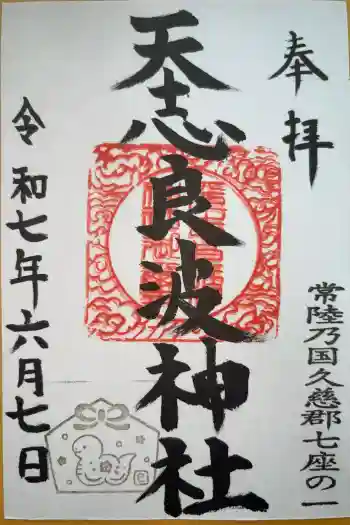 奉拝
常陸乃国久慈郡七座の一
天志良波神社
令和七年六月七日